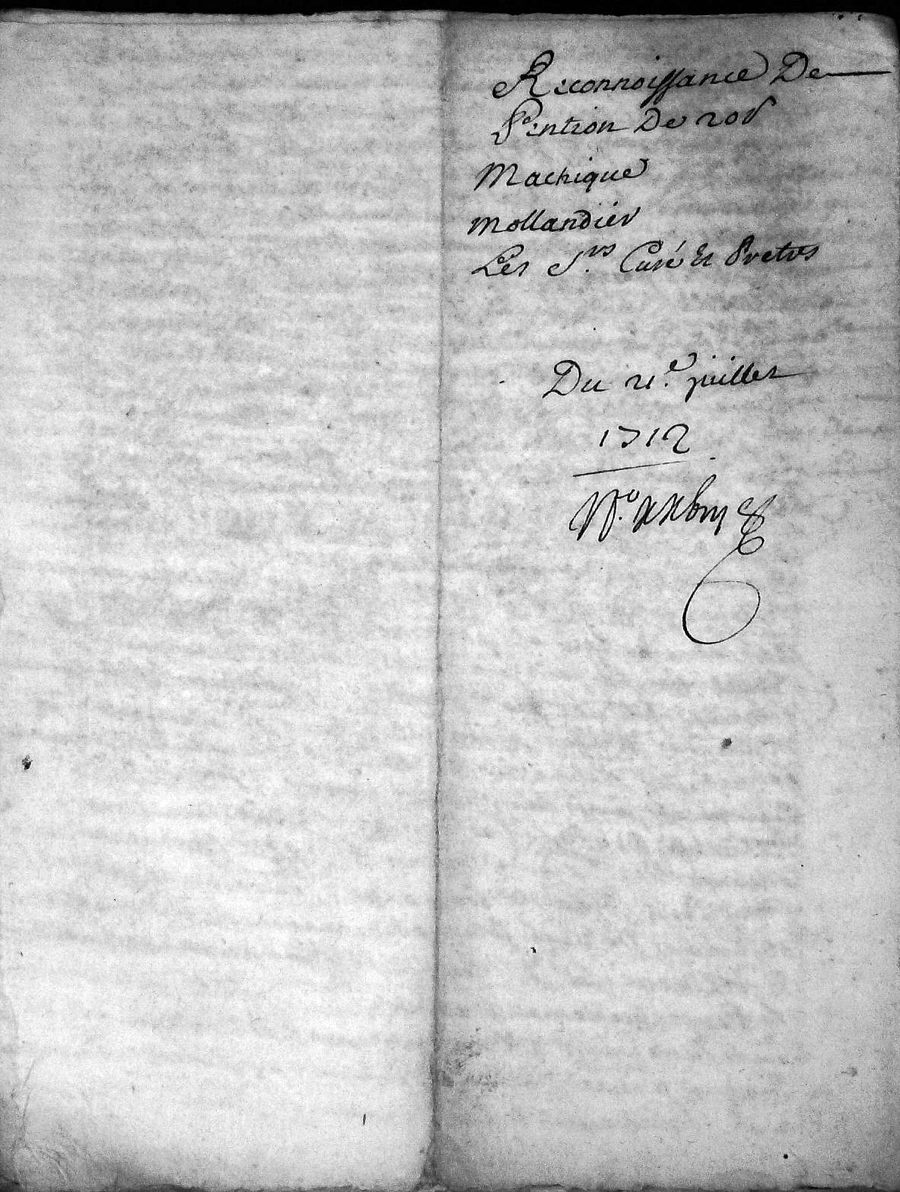 Reconnoissance De
Pention De 20s
Machique
Mollandier
Les Srs Curé Et Pretres
Du 21e juillet
1712
No